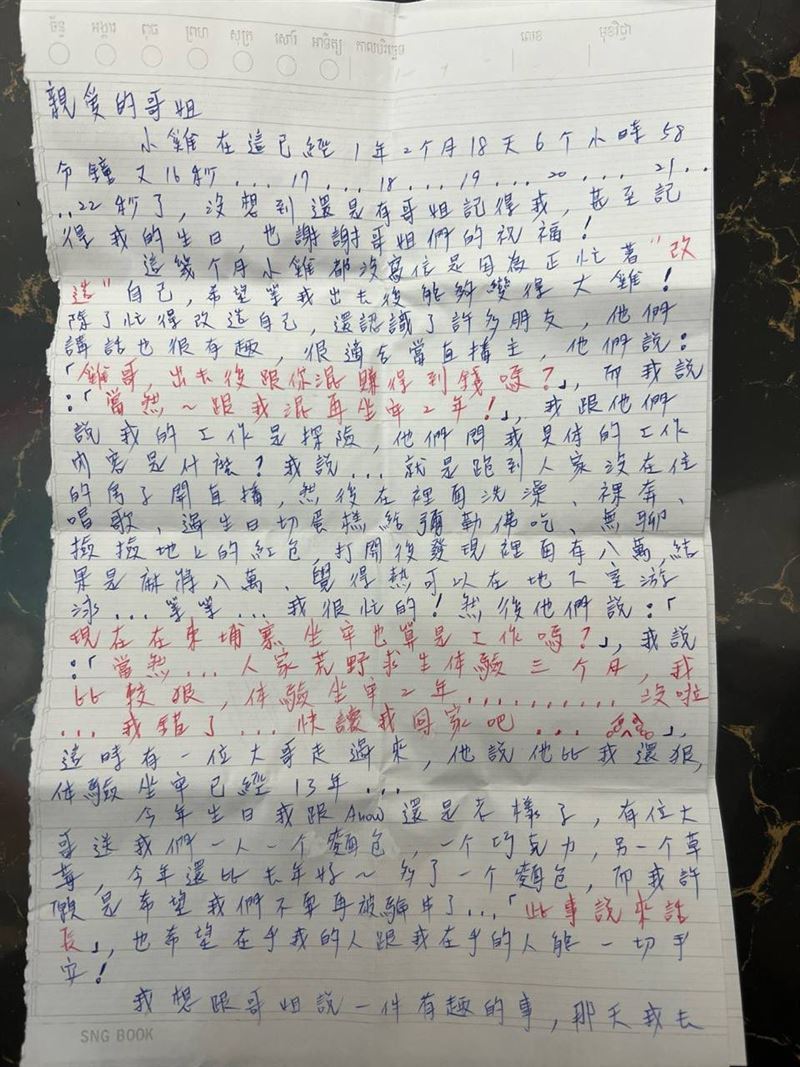 ច័ន្ទ អង្គារ ពុធ ព្រហ សុក្រ សៅរ៍ អាទិត្យ កាលបរិច្ឆេទ លេខ មុខវិជ្ជា
親愛的哥姐
小雞在這已經1年2個月18天6个小時58
分鐘又16秒...17...18...19...20...21..
..22秒了,沒想到還是有哥姐記得我,甚至記
得我的生日,也謝謝哥姐們的祝福!
這幾个月小雞都沒寫信是因為正忙著"改
造"自己,希望等我出去後能夠變得大雞!
除了忙得改造自己,還認識了許多朋友,他們
講話也很有趣,很適合當直播主,他們說:
「雞哥,出去後跟你混賺得到錢嗎?」,而我說
:「當然~跟我混再坐牢2年!」,我跟他們
說我的工作是探險,他們問我具体的工作
內容是什麼?我說...就是跑到人家沒在住
的房子開直播,然後在裡面洗澡、裸奔、
唱歌、過生日切蛋糕給彌勒佛吃、無聊
撿撿地上的紅包,打開後發現裡面有八萬,結
果是麻將八萬、覺得熱可以在地下室游
泳...等等...我很忙的!然後他們說:「
現在在柬埔寨坐牢也算是工作嗎?」,我說
:「當然...人家荒野求生体驗三个月,我
比較狠,体驗坐牢2年..........沒啦
...我錯了...快讓我回家吧...」,
這時有一位大哥走過來,他說他比我還狠,
体驗坐牢已經13年...
今年生日我跟Anow還是老樣子,有位大
哥送我們一人一个麵包,一个巧克力,另一个草
莓,今年還比去年好~多了一个麵包,而我許
願是希望我們不要再被騙了...「此事說來話
長」,也希望在乎我的人跟我在乎的人能一切平
安!
我想跟哥姐說一件有趣的事,那天我去
SNG BOOK